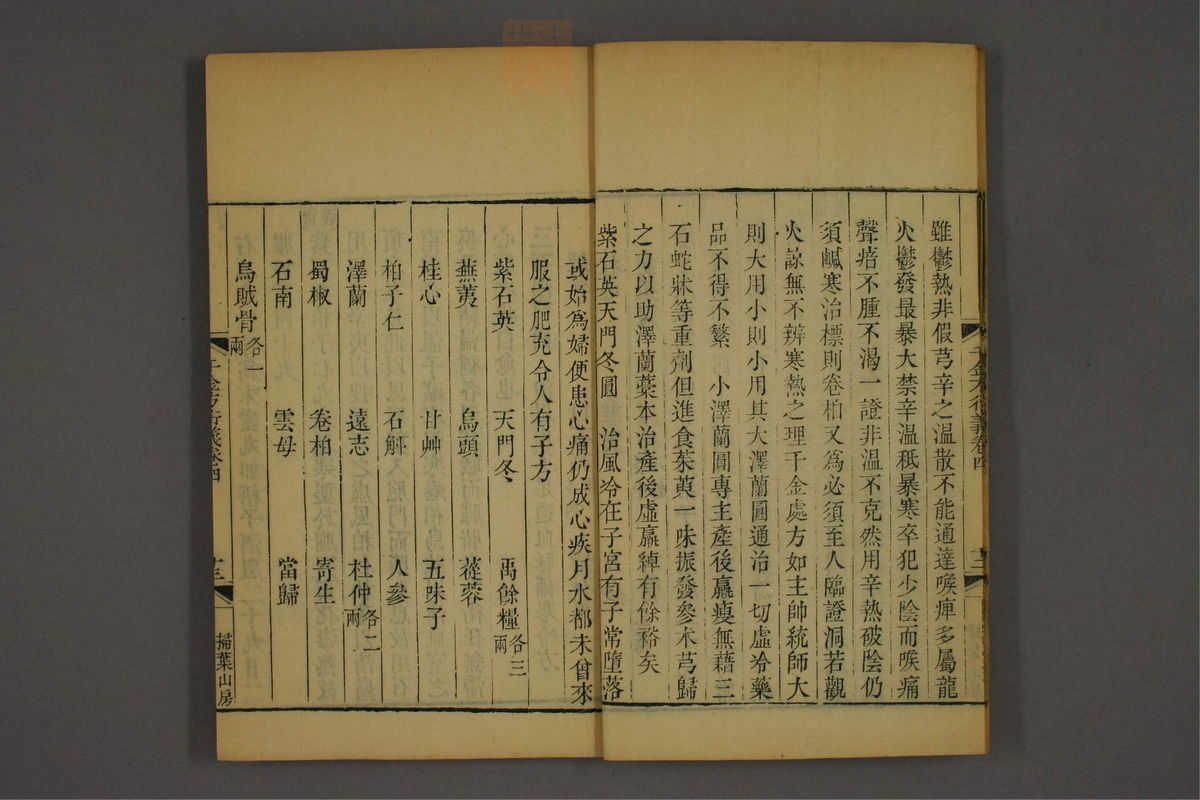 雖鬱熱非假芎辛之溫散不能通達喉痺多屬龍
火鬱發最暴大禁辛溫秪暴寒卒犯少陰而喉痛
聲瘖不腫不渴一證非溫不克然用辛熱破陰仍
須鹹寒治標則卷柏又為必須至人臨證洞若觀
火諒無不辨寒熱之理千金處方如主帥統師大
則大用小則小用其大澤蘭圓通治一切虛冷藥
品不得不繁　小澤蘭圓專主產後羸瘦無藉三
石蛇牀等重劑但進食茱萸一味振發參朮芎歸
之力以助澤蘭藁本治產後虛羸綽有餘裕矣
紫石英天門冬圓　治風冷在子宮有子常墮落
或始為婦便患心痛仍成心疾月水都未曾來
服之肥充令人有子方
紫石英　天門冬　禹餘糧各三兩
蕪荑　烏頭　蓯蓉
桂心　甘艸　五味子
柏子仁　石斛　人參
澤蘭　遠志　杜仲各二兩
蜀椒　卷柏　寄生
石南　雲母　當歸
烏賊骨各一兩
千金方衍義卷四
十三
掃葉山房